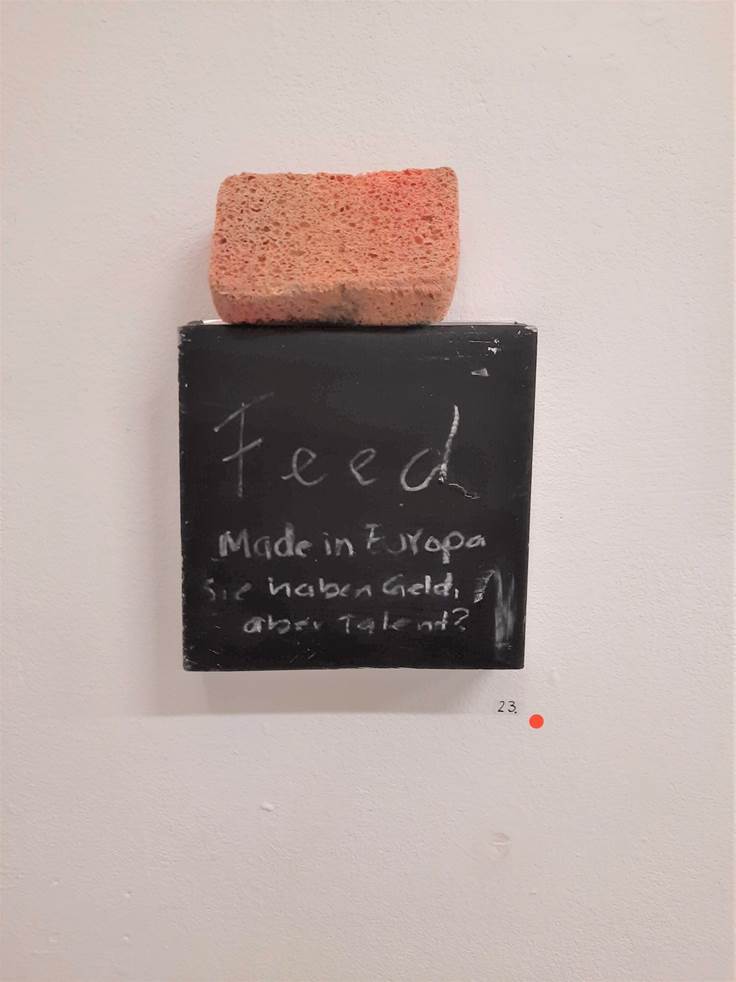 Feed
Made in Europa
Sie haben Geld,
aber Talent?
23.